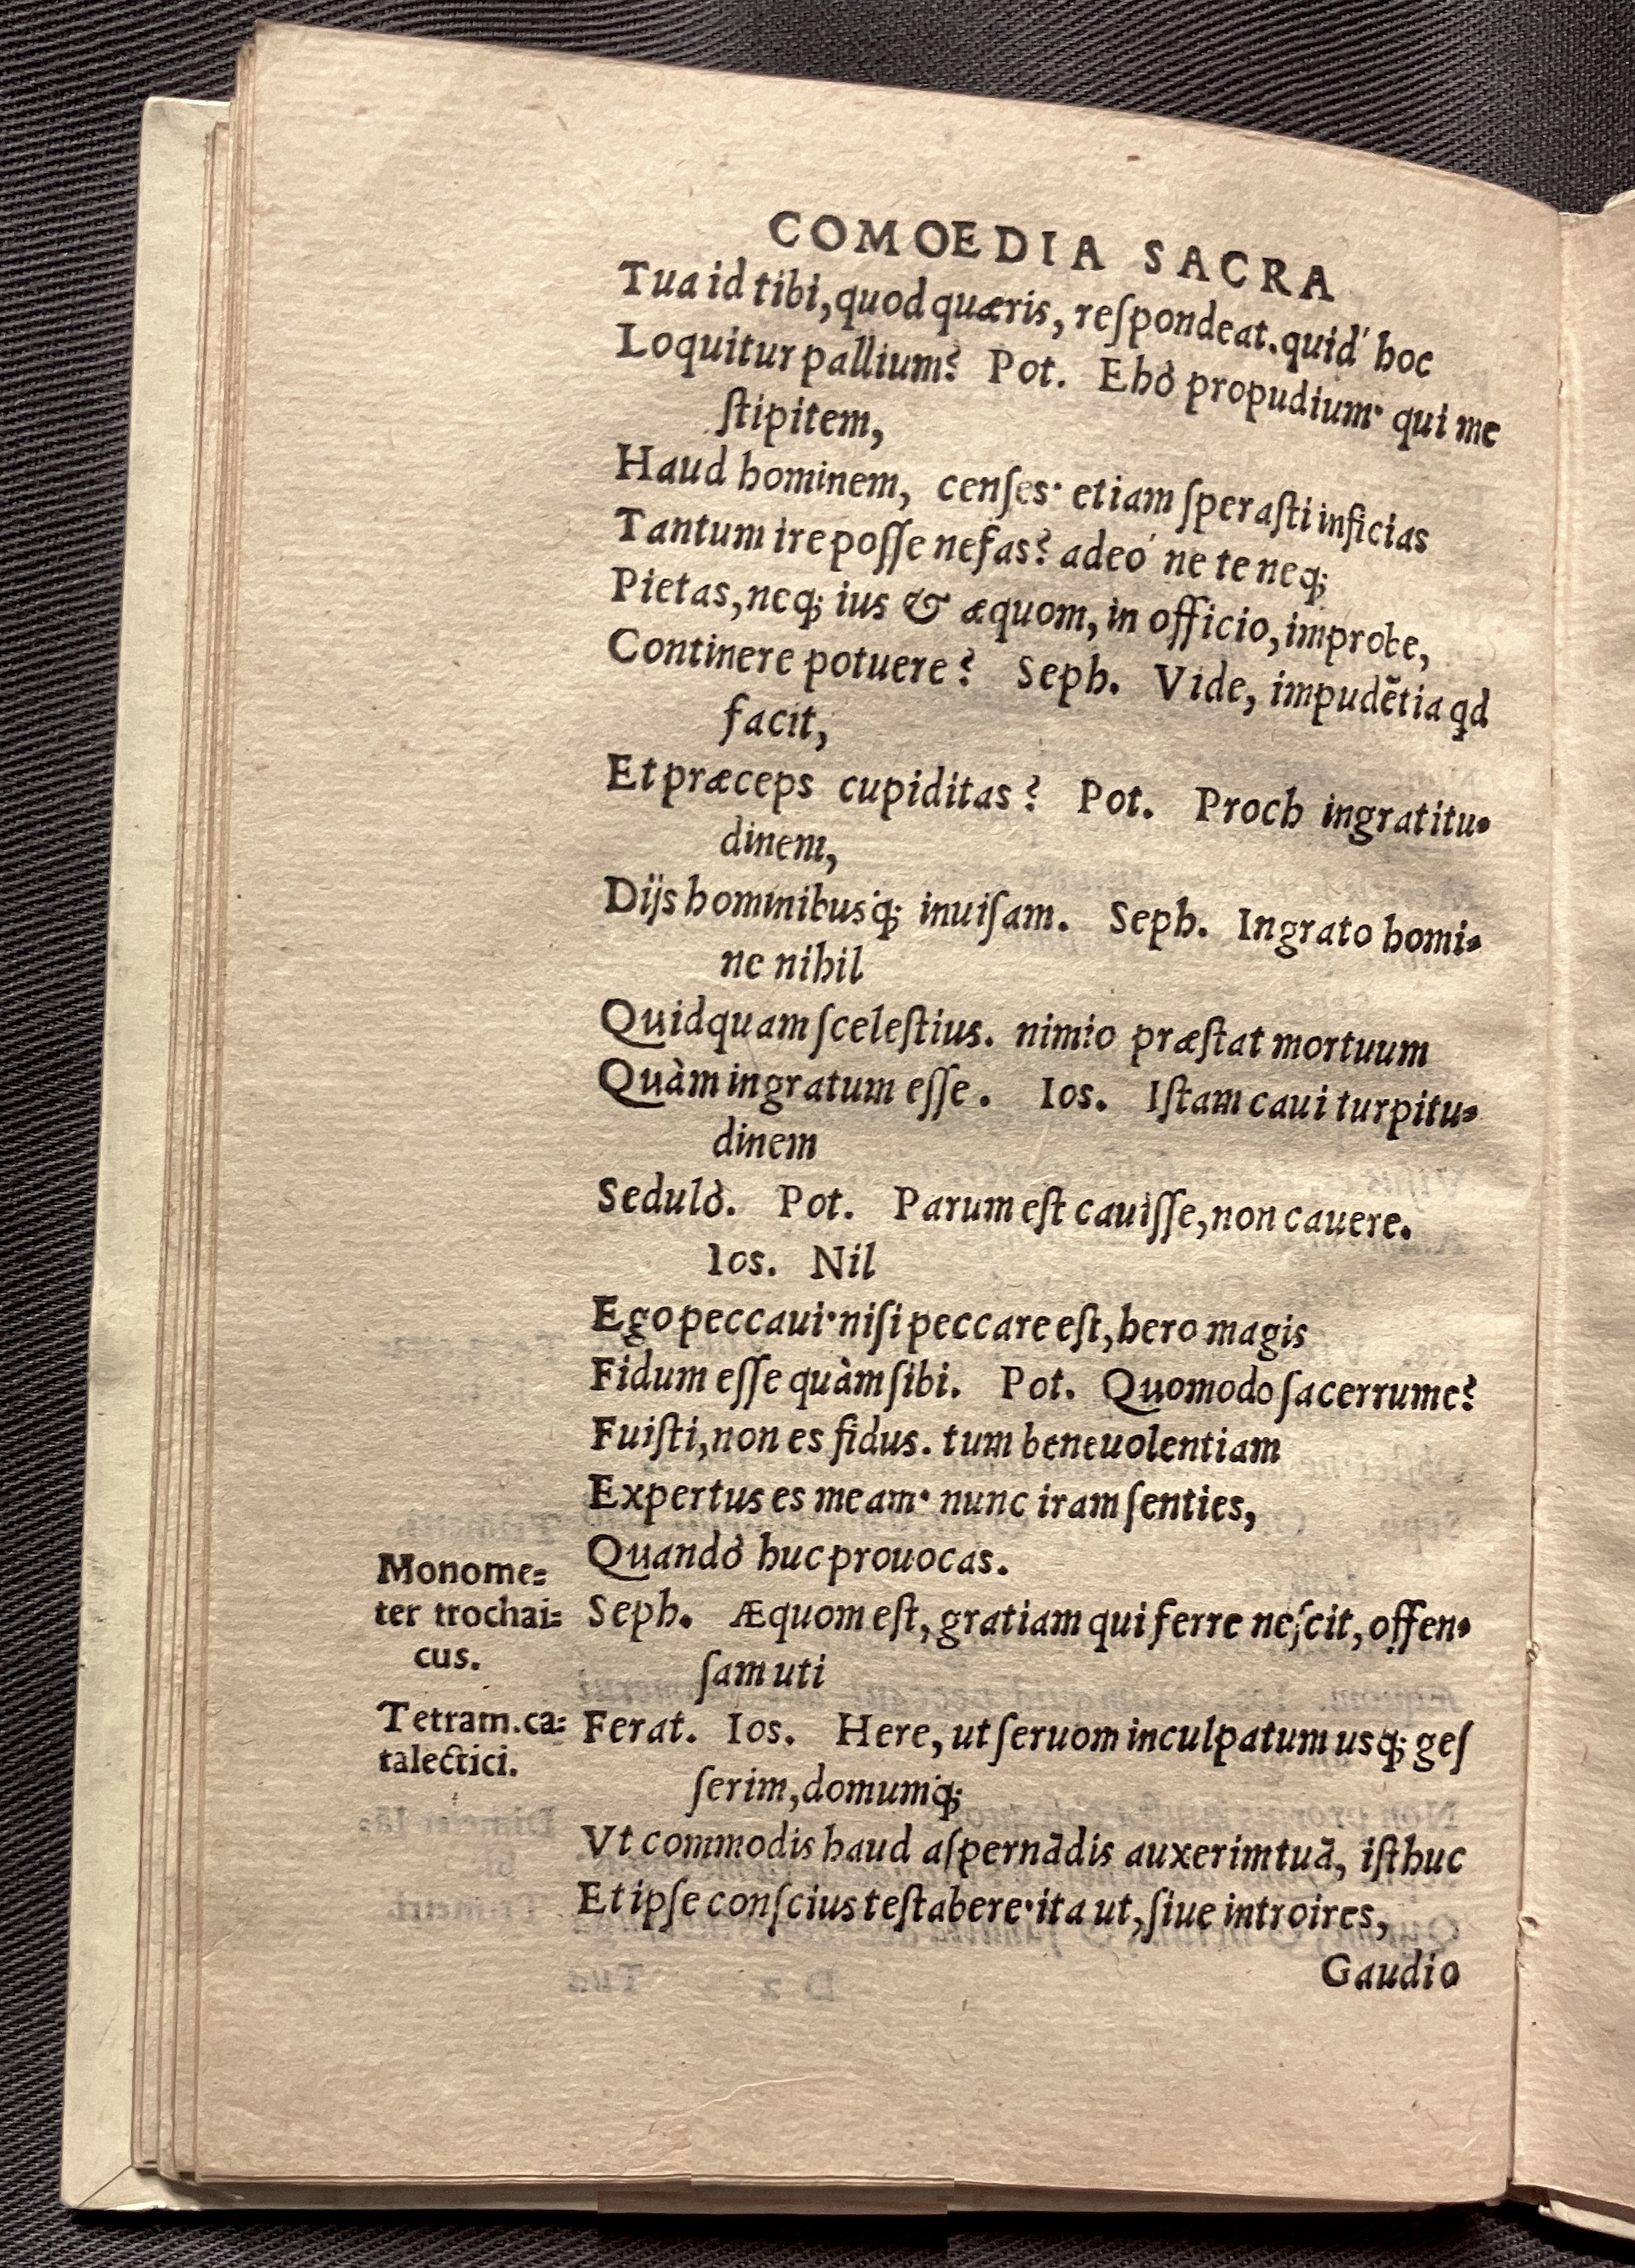 COMOEDIA SACRA
Tua id tibi, quod quæris, reſpondeat. quid' hoc
Loquitur pallium? Pot. Ehò propudium· qui me
ſtipitem,
Haud hominem, cenſes· etiam ſperaſti inficias
Tantum ire poſſe nefas? adeó ne te neq;
Pietas, neq; ius & æquom, in officio, improbe,
Continere potuere? Seph. Vide, impudẽtia qd
facit,
Et præceps cupiditas? Pot. Proch ingratitu-
dinem,
Dijs hominibusq; inuiſam. Seph. Ingrato homi-
ne nihil
Quidquam ſceleſtius. nimio præſtat mortuum
Quàm ingratum eſſe. Ios. Iſtam caui turpitu-
dinem
Sedulò. Pot. Parum eſt cauiſſe, non cauere.
Ios. Nil
Ego peccaui· niſi peccare eſt, hero magis
Fidum eſſe quàm ſibi. Pot. Quomodo ſacerrume?
Fuiſti, non es fidus. tum beneuolentiam
Expertus es meam· nunc iram ſenties,
Quandò huc prouocas.
Monome-
ter trochai-
cus.
Seph. Æquom eſt, gratiam qui ferre neſcit, offen-
ſam uti
Tetram. ca-
talectici.
Ferat. Ios. Here, ut ſeruom inculpatum usq; geſ
ſerim, domumq;
Vt commodis haud aſpernãdis auxerim tuã, iſthuc
Et ipſe conſcius teſtabere· ita ut, ſiue introires,
Gaudio